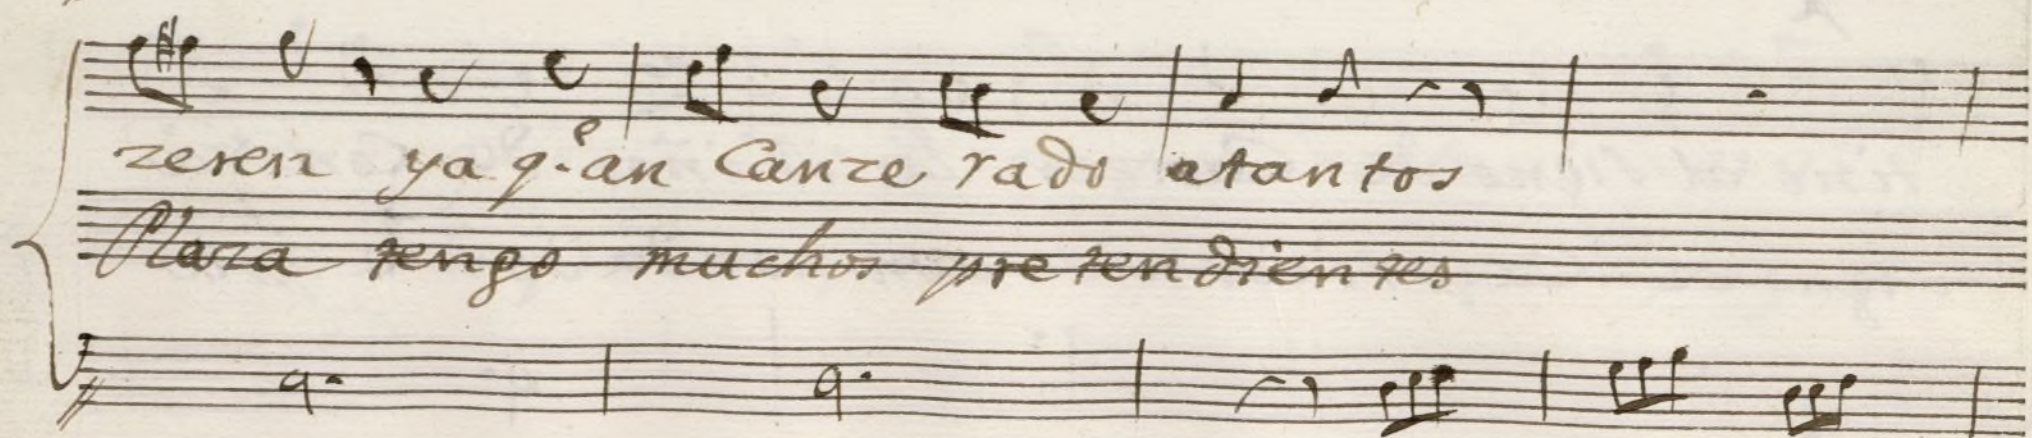 zeren ya q.e an Canze rado atantos
Plaza tengo muchos pre tendientes